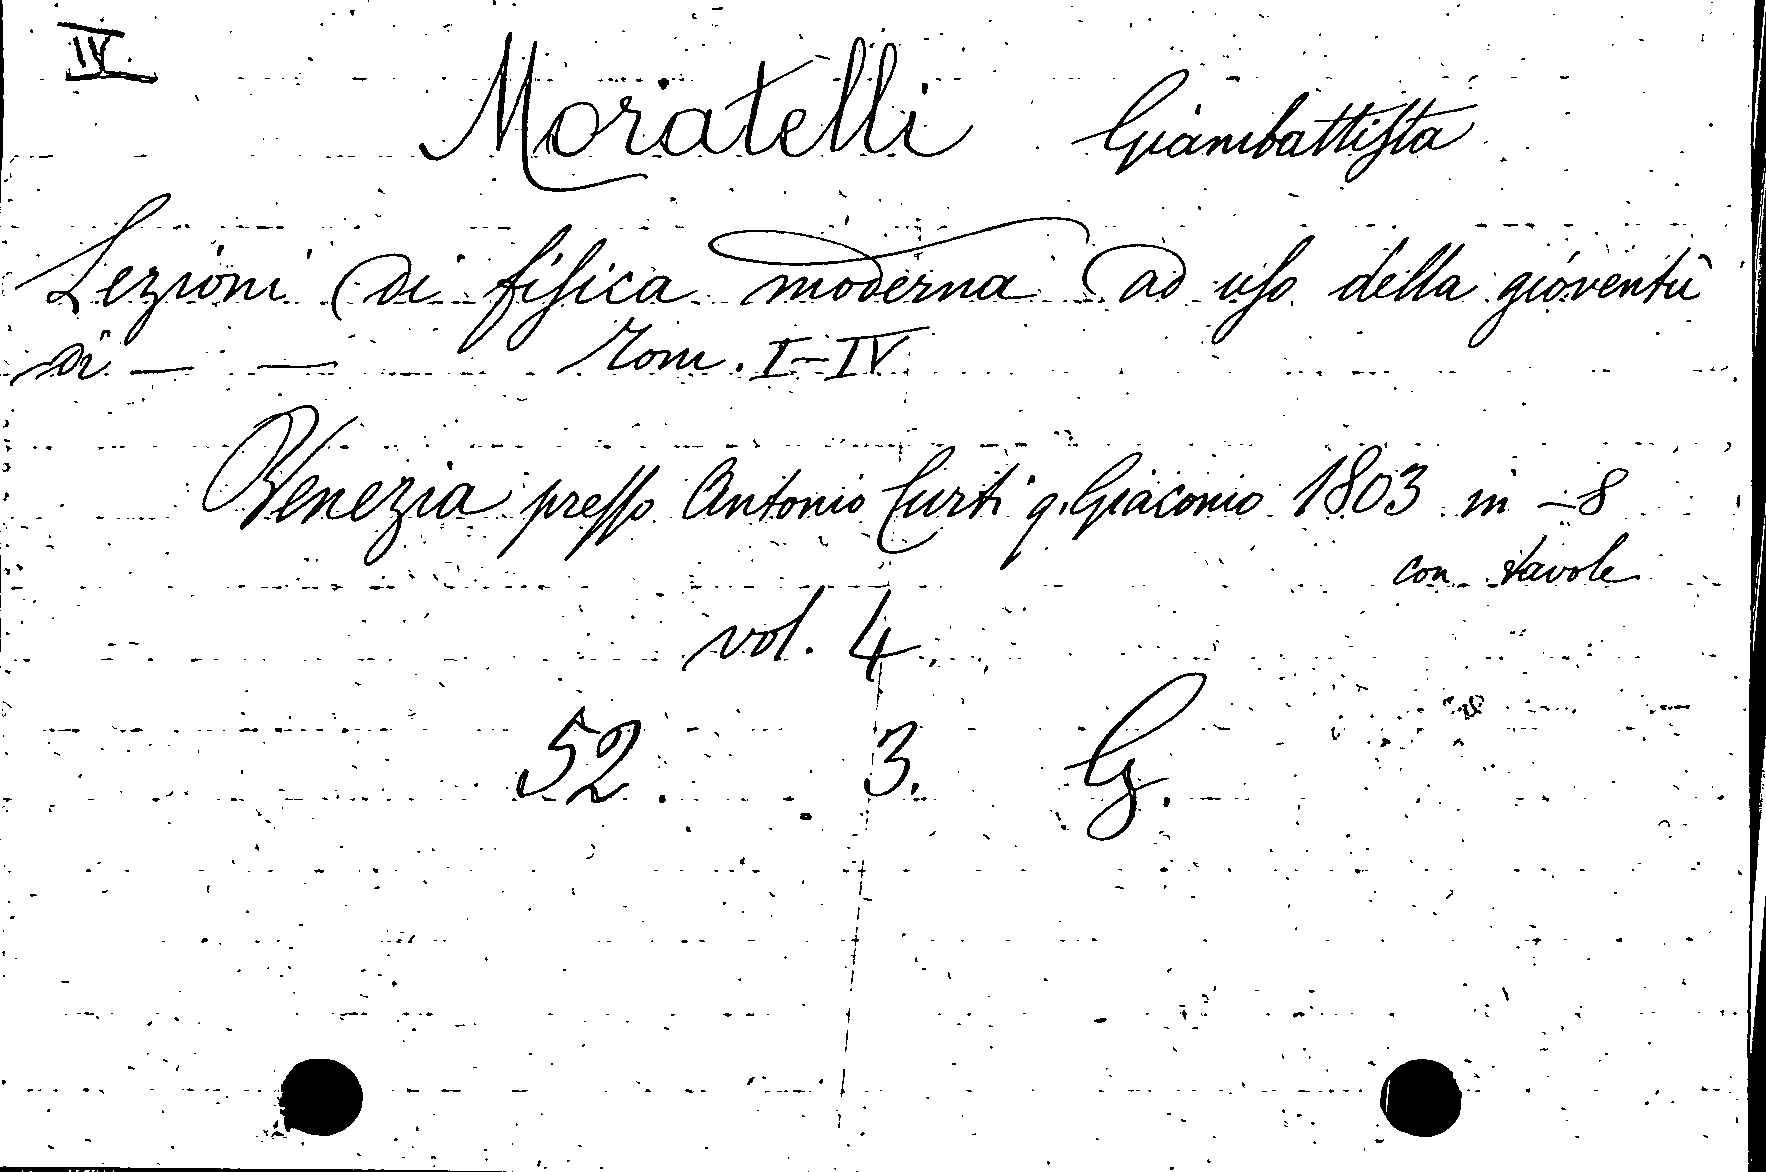 IV.
Moratelli Giambattista
Lezioni di fisica moderna ad uso della gioventù
di — — Tom. I-IV
Venezia presso Antonio Curti q. Giacomo 1803 in -8
con tavole
vol. 4
52. 3. G.